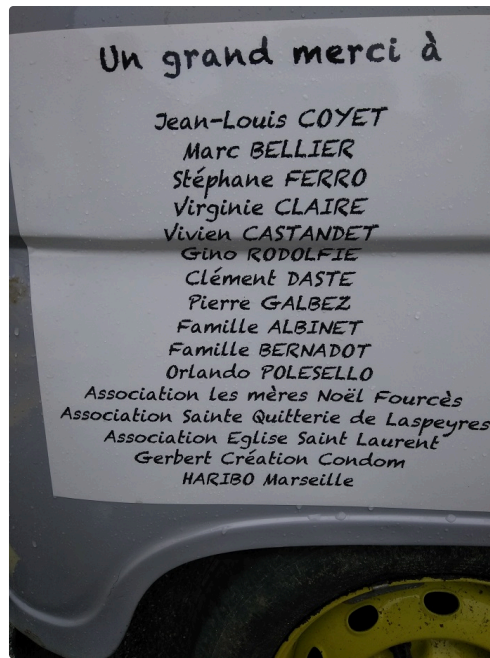 Un grand merci à
Jean-Louis COYET
Marc BELLIER
Stéphane FERRO
Virginie CLAIRE
Vivien CASTANDET
Gino RODOLFIE
Clément DASTE
Pierre GALBEZ
Famille ALBINET
Famille BERNADOT
Orlando POLESELLO
Association les mères Noël Fourcès
Association Sainte Quitterie de Laspeyres
Association Eglise Saint Laurent
Gerbert Création Condom
HARIBO Marseille